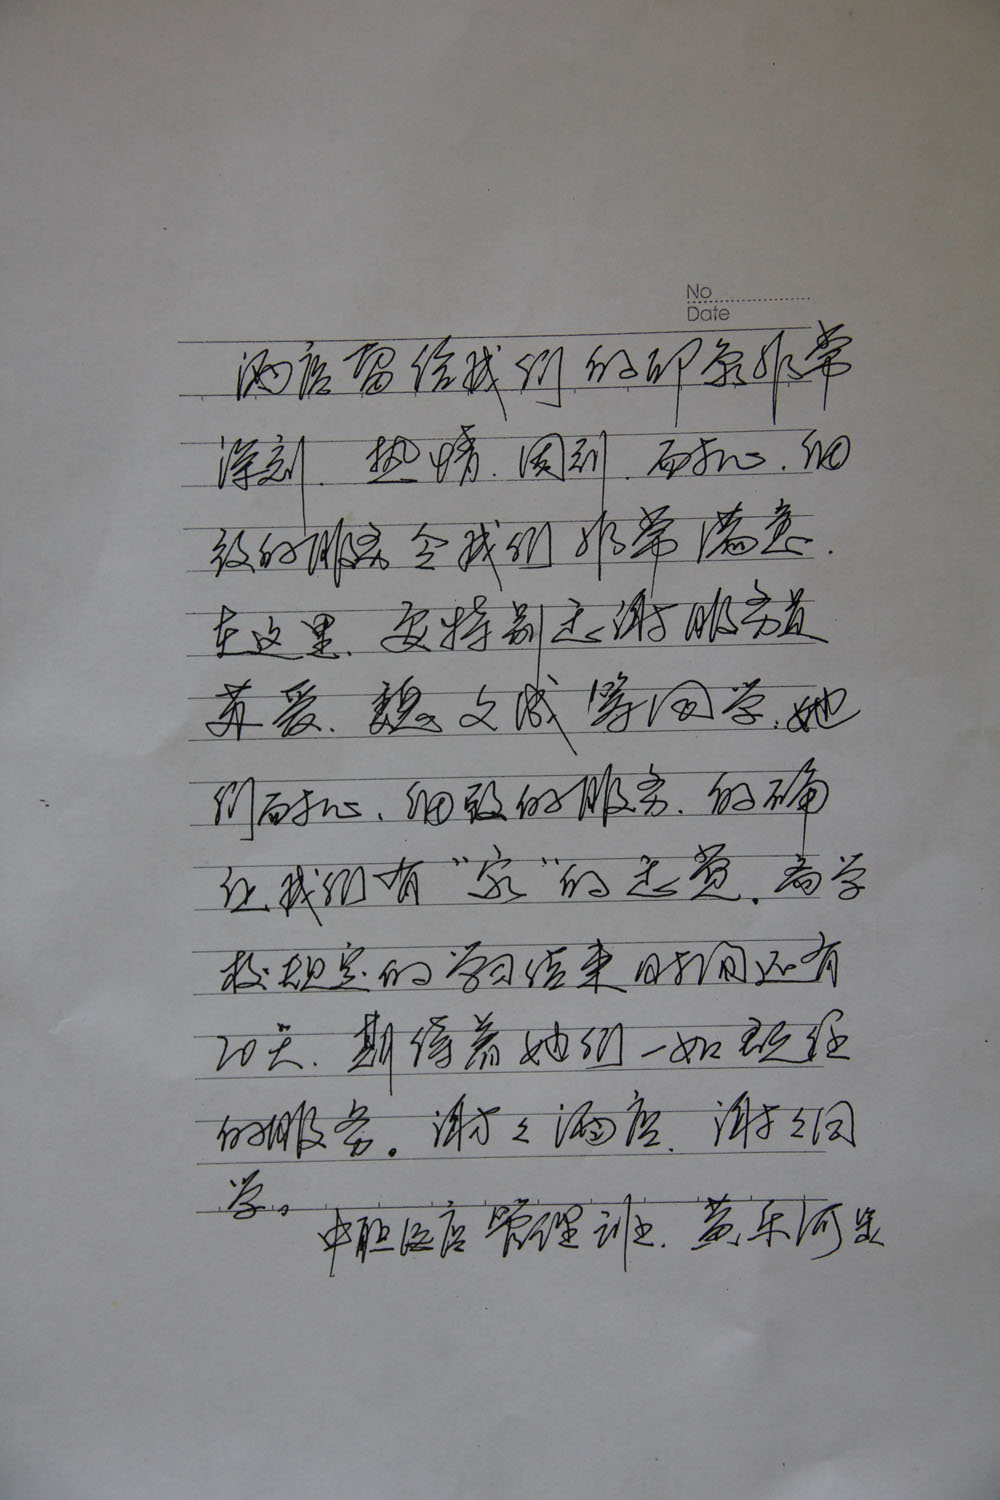 No
Date
酒店留给我们的印象非常
深刻.热情.周到.而耐心.细
致的服务令我们非常满意.
在这里.要特别感谢服务员
苏爱.魏文成等同学.她
们耐心.细致的服务.的确
让我们有"家"的感觉.离学
校规定的学习结束时间还有
20天.期待着她们一如既往
的服务。谢谢酒店.谢谢同
学。
中职酒店管理班.黄乐河